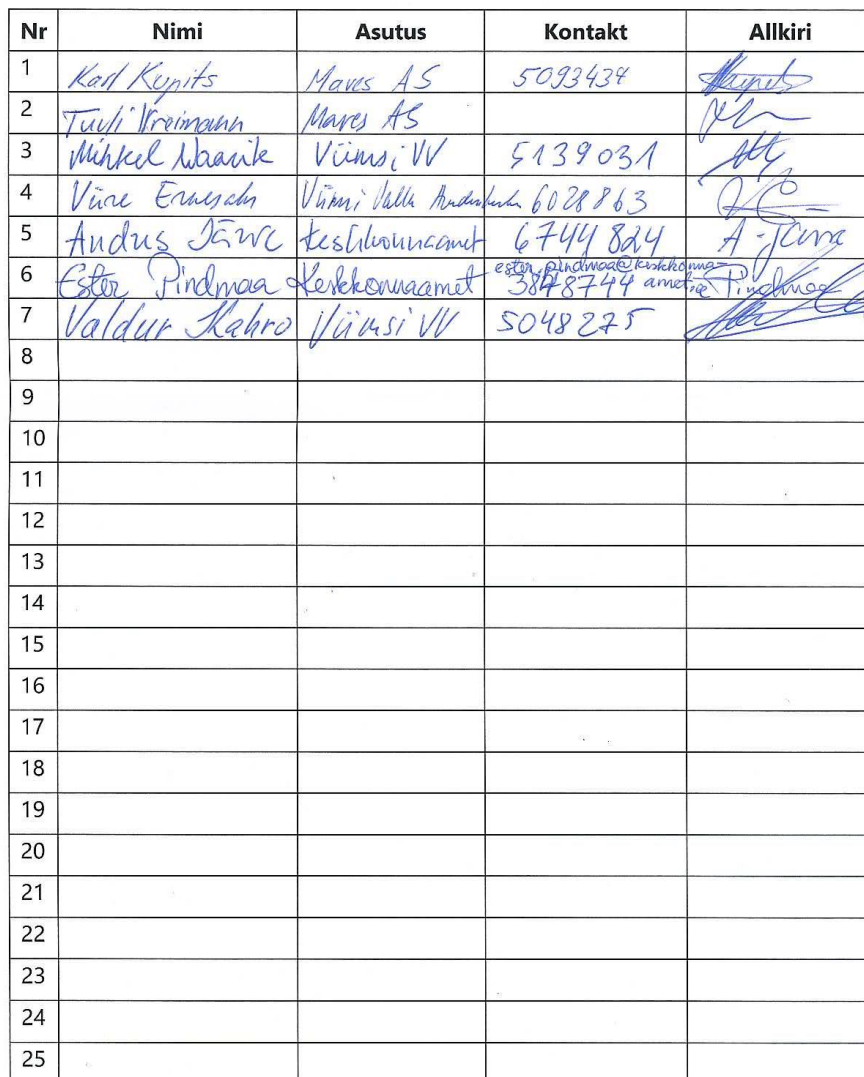 Nr Nimi Asutus Kontakt Allkiri
1 Karl Kupits Maves AS 5093434
2 Tuuli Vreimann Maves AS
3 Mihkel Waarik Viimsi VV 5139031
4 Viire Viimsi Valla 6028863
5 Andus Järve Keskkonnaamet 6744 824 A-Järve
ester.pindmaa@keskkonna-
6 Ester Pindmaa Keskkonnaamet 3848744 amet.ee Pindmaa
7 Valdur Kahro Viimsi VV 5048275
8
9
10
11
12
13
14
15
16
17
18
19
20
21
22
23
24
25